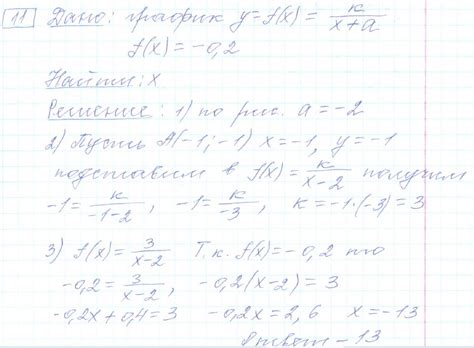 11 Дано: график y=f(x) = к/(x+a)
f(x) = -0,2
Найти: x
Решение: 1) по рис. a = -2
2) Пусть A(-1; -1) x = -1, y = -1
подставим в f(x) = к/(x-2) получим
-1 = к/(-1-2), -1 = к/-3, к = -1·(-3) = 3
3) f(x) = 3/(x-2) Т.к. f(x) = -0,2 то
-0,2 = 3/(x-2), -0,2(x-2) = 3
-0,2x + 0,4 = 3 -0,2x = 2,6 x = -13
Ответ -13